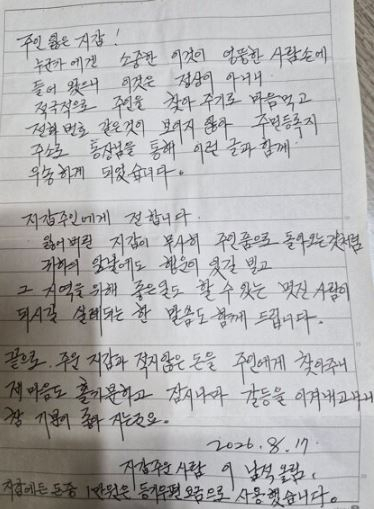 주인 잃은 지갑!
누군가에겐 소중한 이것이 엉뚱한 사람손에
들어 왔으니 이것은 정상이 아니니
적극적으로 주인을 찾아 주기로 마음먹고
전화번호 같은것이 보이지 않아 주민등록지
주소로 통장님을 통해 이런 글과 함께
우송하게 되었습니다.
지갑주인에게 전합니다.
잃어버린 지갑이 무사히 주인품으로 돌아오는것처럼
귀하의 앞날에도 행운이 있길 빌고
그 지역을 위해 좋은일도 할 수 있는 멋진 사람이
되시길 한 말씀도 함께 드립니다.
끝으로, 주운 지갑과 적지않은 돈을 주인에게 찾아주니
제 마음도 홀가분하고 잠시나마 갈등을 이겨내고나니
참 기분이 좋아 지는군요.
2026. 8. 17.
지갑주운 사람 이 남석 올림.
지갑에든 돈중 1만원은 등기우편 요금으로 사용했습니다.